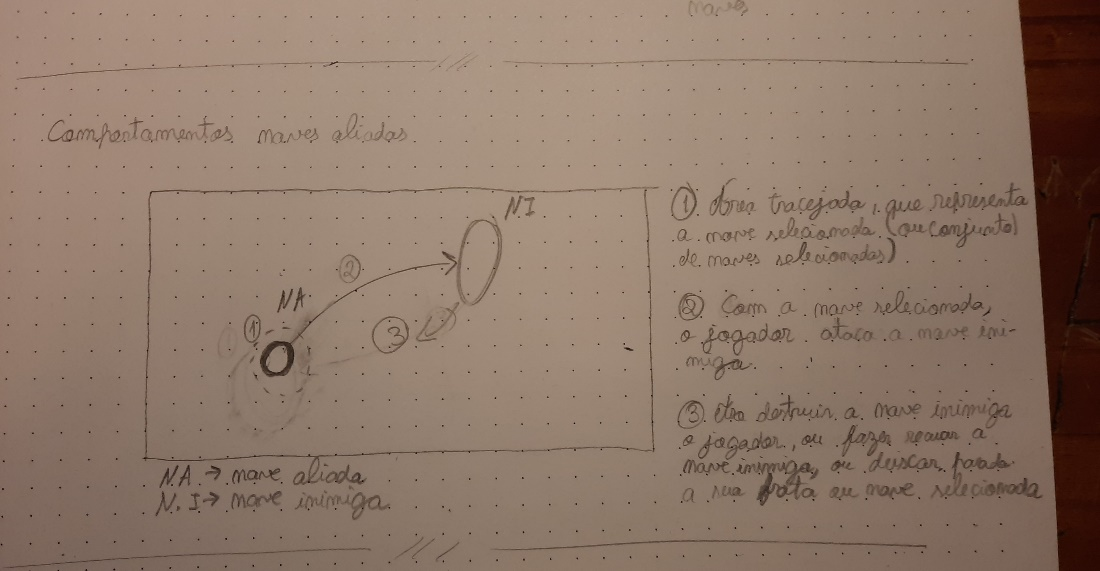 naves
Comportamentos naves aliadas
NI
②
NA
①
③
① Área tracejada, que representa
a nave selecionada (ou conjunto)
de naves selecionadas)
② Com a nave selecionada,
o jogador ataca a nave ini-
miga.
③ Ao destruir a nave inimiga
o jogador, ou fazer recuar a
nave inimiga, ou deixar parada
a sua frota ou nave selecionada
NA → nave aliada
N.I → nave inimiga